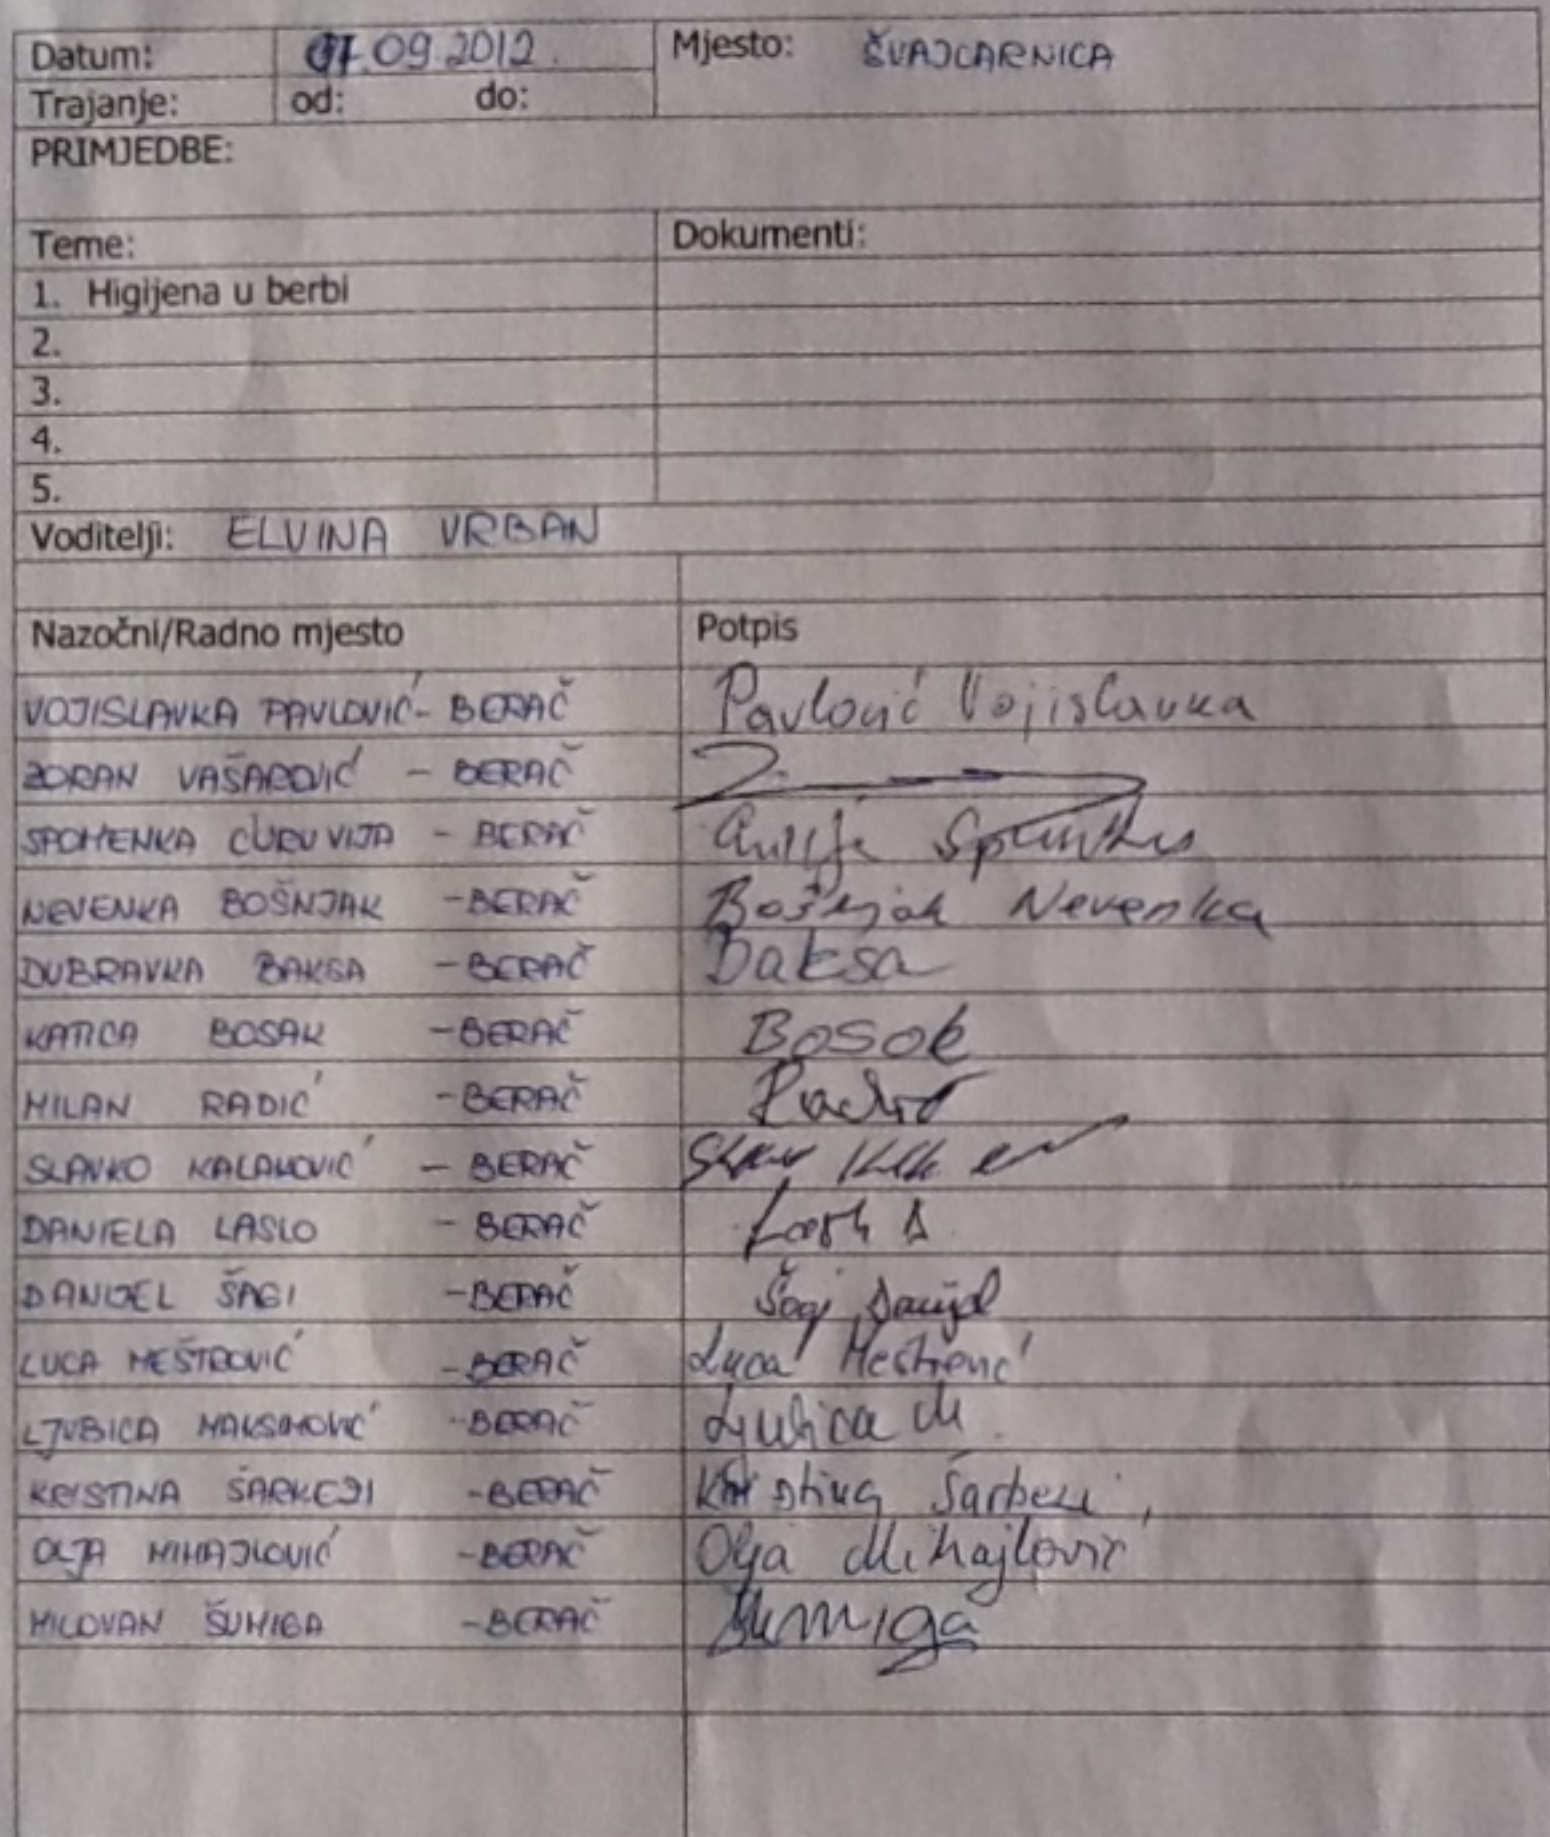 Datum: 07.09.2012. Mjesto: ŠVAJCARNICA
Trajanje: od: do:
PRIMJEDBE:
Teme: Dokumenti:
1. Higijena u berbi
2.
3.
4.
5.
Voditelji: ELVINA VRBAN
Nazočni/Radno mjesto Potpis
VOJISLAVKA PAVLOVIĆ - BERAČ Pavlović Vojislavka
ZORAN VAŠAROVIĆ - BERAČ
SPOMENKA ĆURUVIJA - BERAČ
NEVENKA BOŠNJAK - BERAČ Bošnjak Nevenka
DUBRAVKA BAKSA - BERAČ Baksa
KATICA BOSAK - BERAČ Bosak
MILAN RADIĆ - BERAČ Radić
SLAVKO KALAKOVIĆ - BERAČ
DANIELA LASLO - BERAČ
DANIJEL ŠAGI - BERAČ Šagi Danijel
LUCA MEŠTROVIĆ - BERAČ Luca Meštrović
LJUBICA MAKSIMOVIĆ - BERAČ Ljubica M.
KRISTINA ŠARKEZI - BERAČ Kristina Šarkezi
OLJA MIHAJLOVIĆ - BERAČ Olja Mihajlović
MILOVAN ŠUMIGA - BERAČ Šumiga